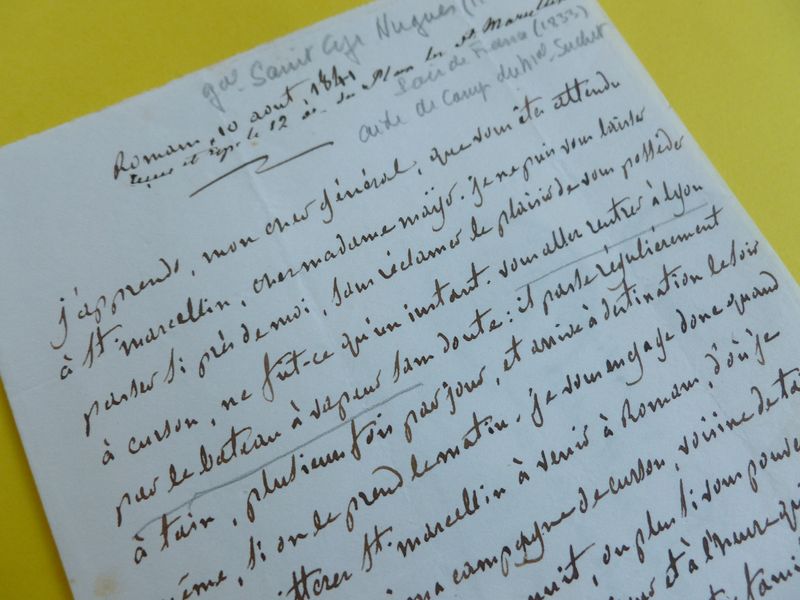 gal Saint Cyr Nugues
Pair de France (1833)
aide de Camp du Mal Suchet
Romans, 10 aout 1841
reçue et rep. le 12 St Marcellin
j'apprends, mon cher général, que vous êtes attendu
à St marcellin, chez madame mayo. je ne puis vous laisser
passer si près de moi, sans réclamer le plaisir de vous posséder
à curson, ne fût-ce qu'un instant. vous allez rentrer à lyon
par le bateau à vapeur sans doute: il passe régulièrement
à tain, plusieurs fois par jour, et arrive à destination le soir
même, si on le prend le matin. je vous engage donc quand
St marcellin à venir à Romans, d'où je
ma campagne de curson, voisine de
nuit, ou plus si vous pouvez
et à l'heure